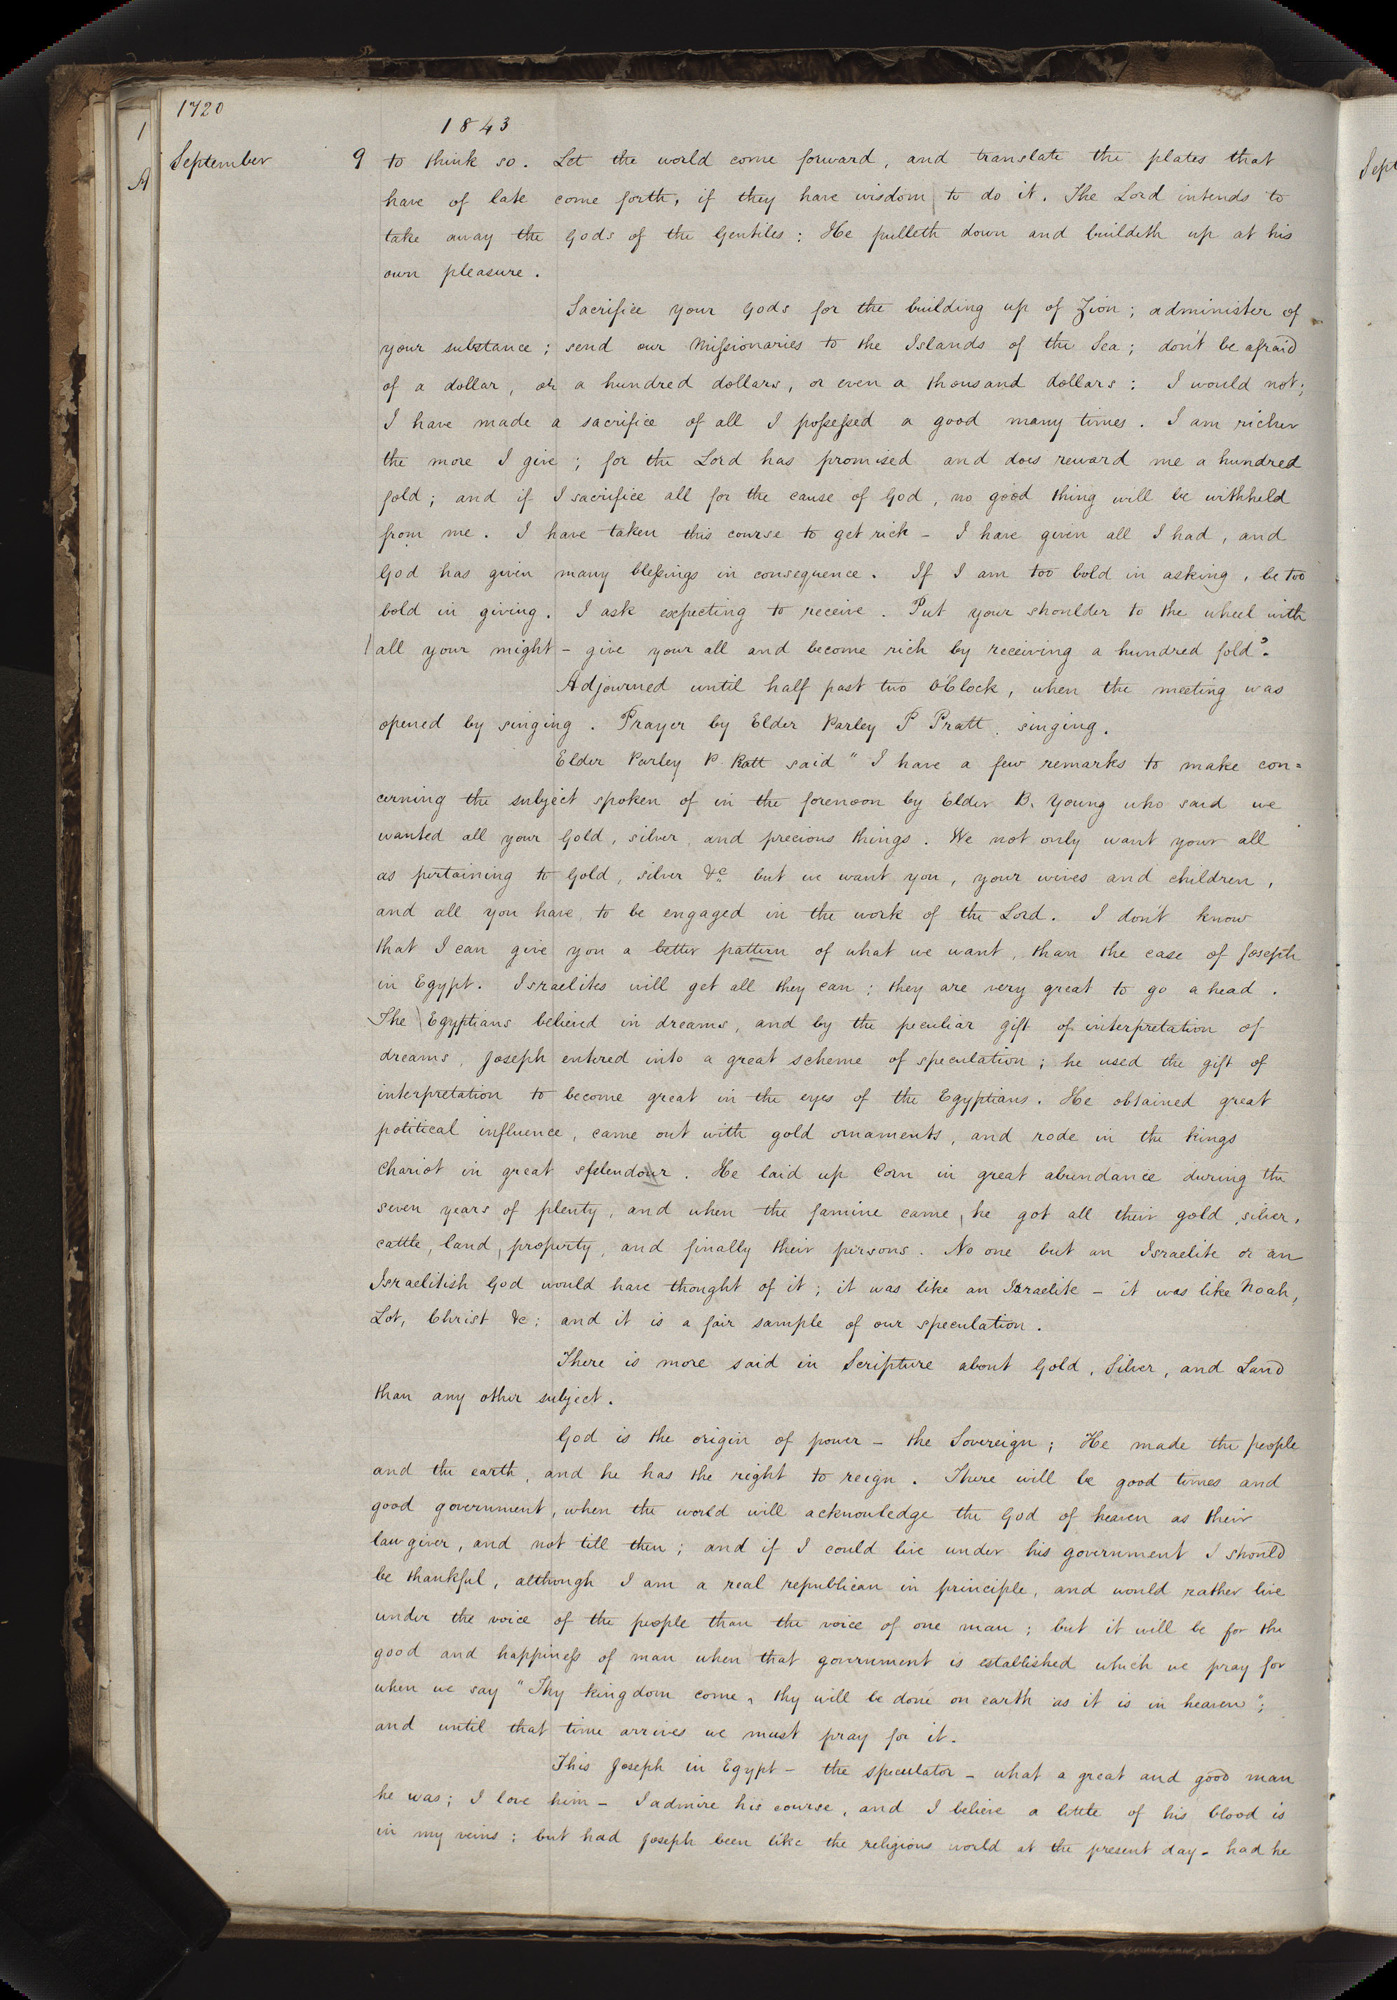 1720
1
1843
September 9 to think so. Let the world come forward, and translate the plates that
A
Sept
have of late come forth, if they have wisdom to do it. The Lord intends to
take away the Gods of the Gentiles: He pulleth down and buildeth up at his
own pleasure.
Sacrifice your Gods for the building up of Zion; administer of
your substance; send our Missionaries to the Islands of the Sea; don't be afraid
of a dollar, or a hundred dollars, or even a thousand dollars: I would not;
I have made a sacrifice of all I possessed a good many times. I am richer
the more I give; for the Lord has promised and does reward me a hundred
fold; and if I sacrifice all for the cause of God, no good thing will be withheld
from me. I have taken this course to get rich – I have given all I had, and
God has given many blessings in consequence. If I am too bold in asking, be too
bold in giving. I ask expecting to receive. Put your shoulder to the wheel with
all your might – give your all and become rich by receiving a hundred fold".
Adjourned until half past two o'Clock, when the meeting was
opened by singing. Prayer by Elder Parley P Pratt. singing.
Elder Parley P. Pratt said "I have a few remarks to make con=
cerning the subject spoken of in the forenoon by Elder B. Young who said we
wanted all your Gold, silver, and precious things. We not only want your all
as pertaining to Gold, silver &c but we want you, your wives and children,
and all you have, to be engaged in the work of the Lord. I don't know
that I can give you a better pattern of what we want, than the case of Joseph
in Egypt. Israelites will get all they can; they are very great to go a head.
The Egyptians believed in dreams, and by the peculiar gift of interpretation of
dreams, Joseph entered into a great scheme of speculation; he used the gift of
interpretation to become great in the eyes of the Egyptians. He obtained great
political influence, came out with gold ornaments, and rode in the kings
Chariot in great splendour. He laid up Corn in great abundance during the
seven years of plenty, and when the famine came, he got all their gold, silver,
cattle, land, property, and finally their persons. No one but an Israelite or an
Israelitish God would have thought of it; it was like an Israelite – it was like Noah,
Lot, Christ &c: and it is a fair sample of our speculation.
There is more said in Scripture about Gold, Silver, and Land
than any other subject.
God is the origin of power – the Sovereign; He made the people
and the earth, and he has the right to reign. There will be good times and
good government, when the world will acknowledge the God of heaven as their
law giver, and not till then; and if I could live under his government I should
be thankful, although I am a real republican in principle, and would rather live
under the voice of the people than the voice of one man; but it will be for the
good and happiness of man when that government is established which we pray for
when we say "Thy kingdom come, thy will be done on earth as it is in heaven";
and until that time arrives we must pray for it.
This Joseph in Egypt – the speculator – what a great and good man
he was; I love him – I admire his course, and I believe a little of his blood is
in my veins; but had Joseph been like the religious world at the present day – had he